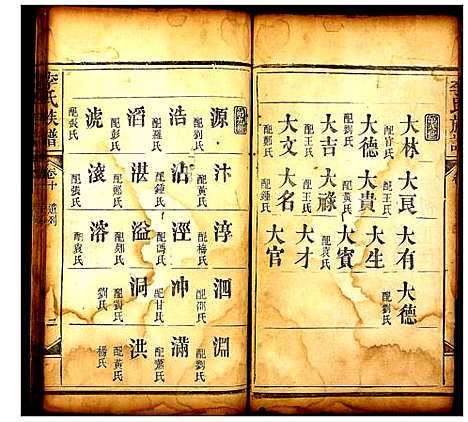 李氏族譜
大林 配官氏 大良 大有 大德 配劉氏
大德 配劉氏 大貴 配王氏 大生
大吉 配王氏 大祿 配王氏 大賓 配袁氏
大文 配鄭氏 大名 配鍾氏 大才
大官
源 配劉氏 汴 配黃氏 淳 配楊氏 泗 配邵氏 淵 配劉氏
浩 配羅氏 沾 配鍾氏 涇 配馮氏 冲 配甘氏 滿 配蕭氏
滔 配彭氏 湛 配鄭氏 溢 配鄭氏 洞 洪 配黃氏
滾 配張氏 溶 配袁氏 劉氏 楊氏
李氏族譜 卷十